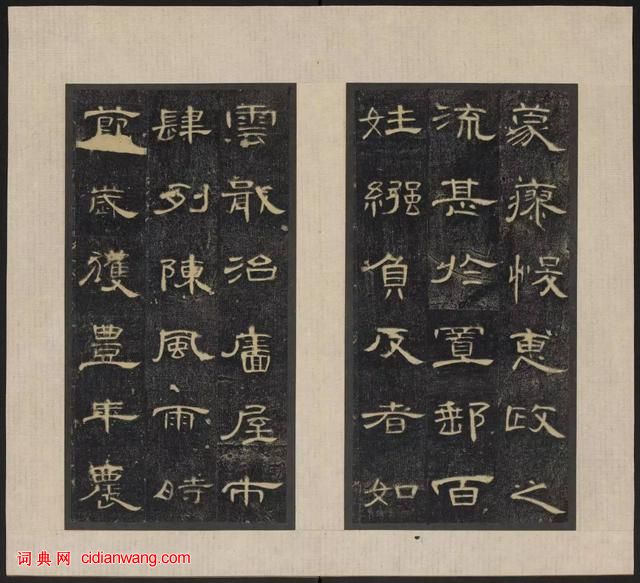 蒙瘳悛惠政之
流甚於置郵百
姓繦負反者如
雲戢治廧屋市
肆列陳風雨時
節歲獲豐年農
词典网 cidianwang.com